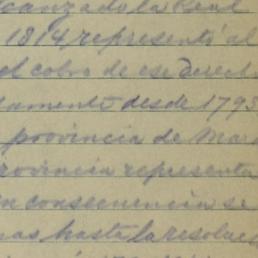 canzado la Real
1814 representó al
el cobro de ese Derech
damente desde 1793
provincia de Mar
rovincia representa
en consecuencia se
mas hasta la resoluci